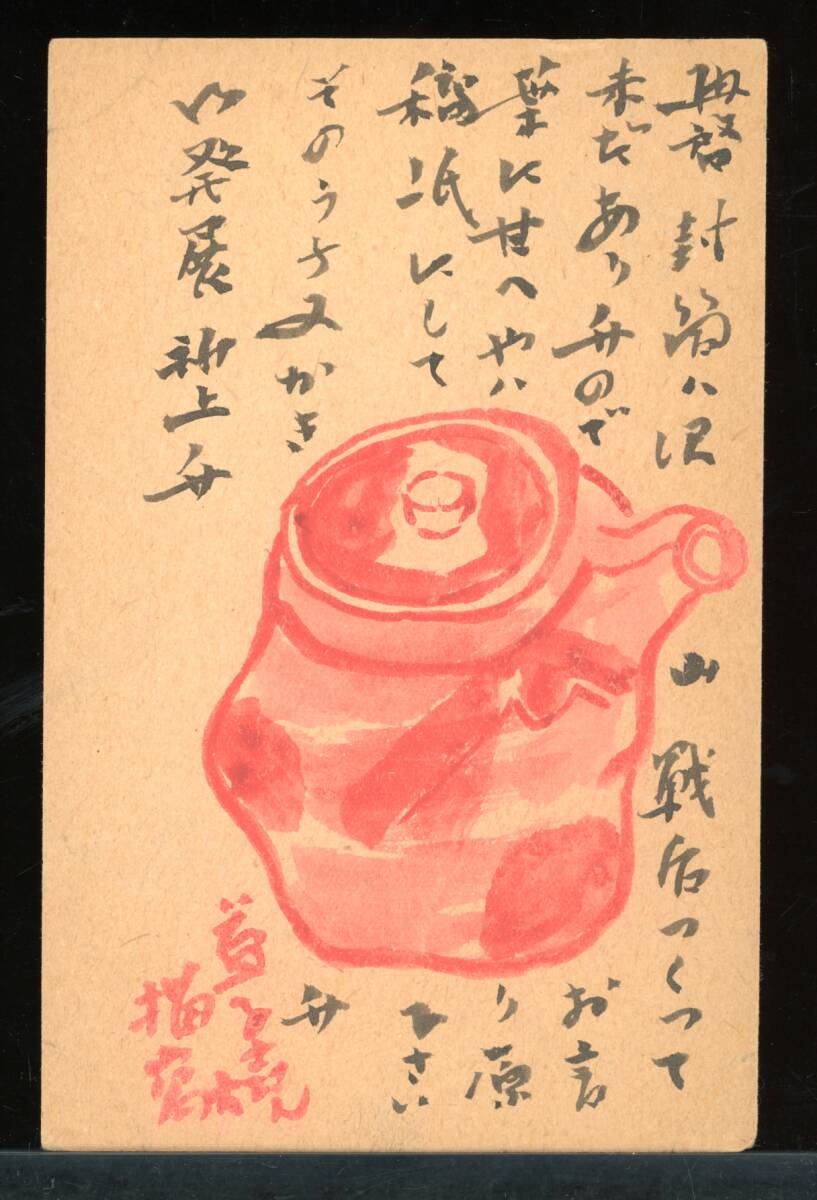 再啓 封筒ハ沢山 戦后つくって
未だあり升ので お言
葉に甘へやハり原
稿紙にして下さい
そのうち又かき升
御発展祈上升